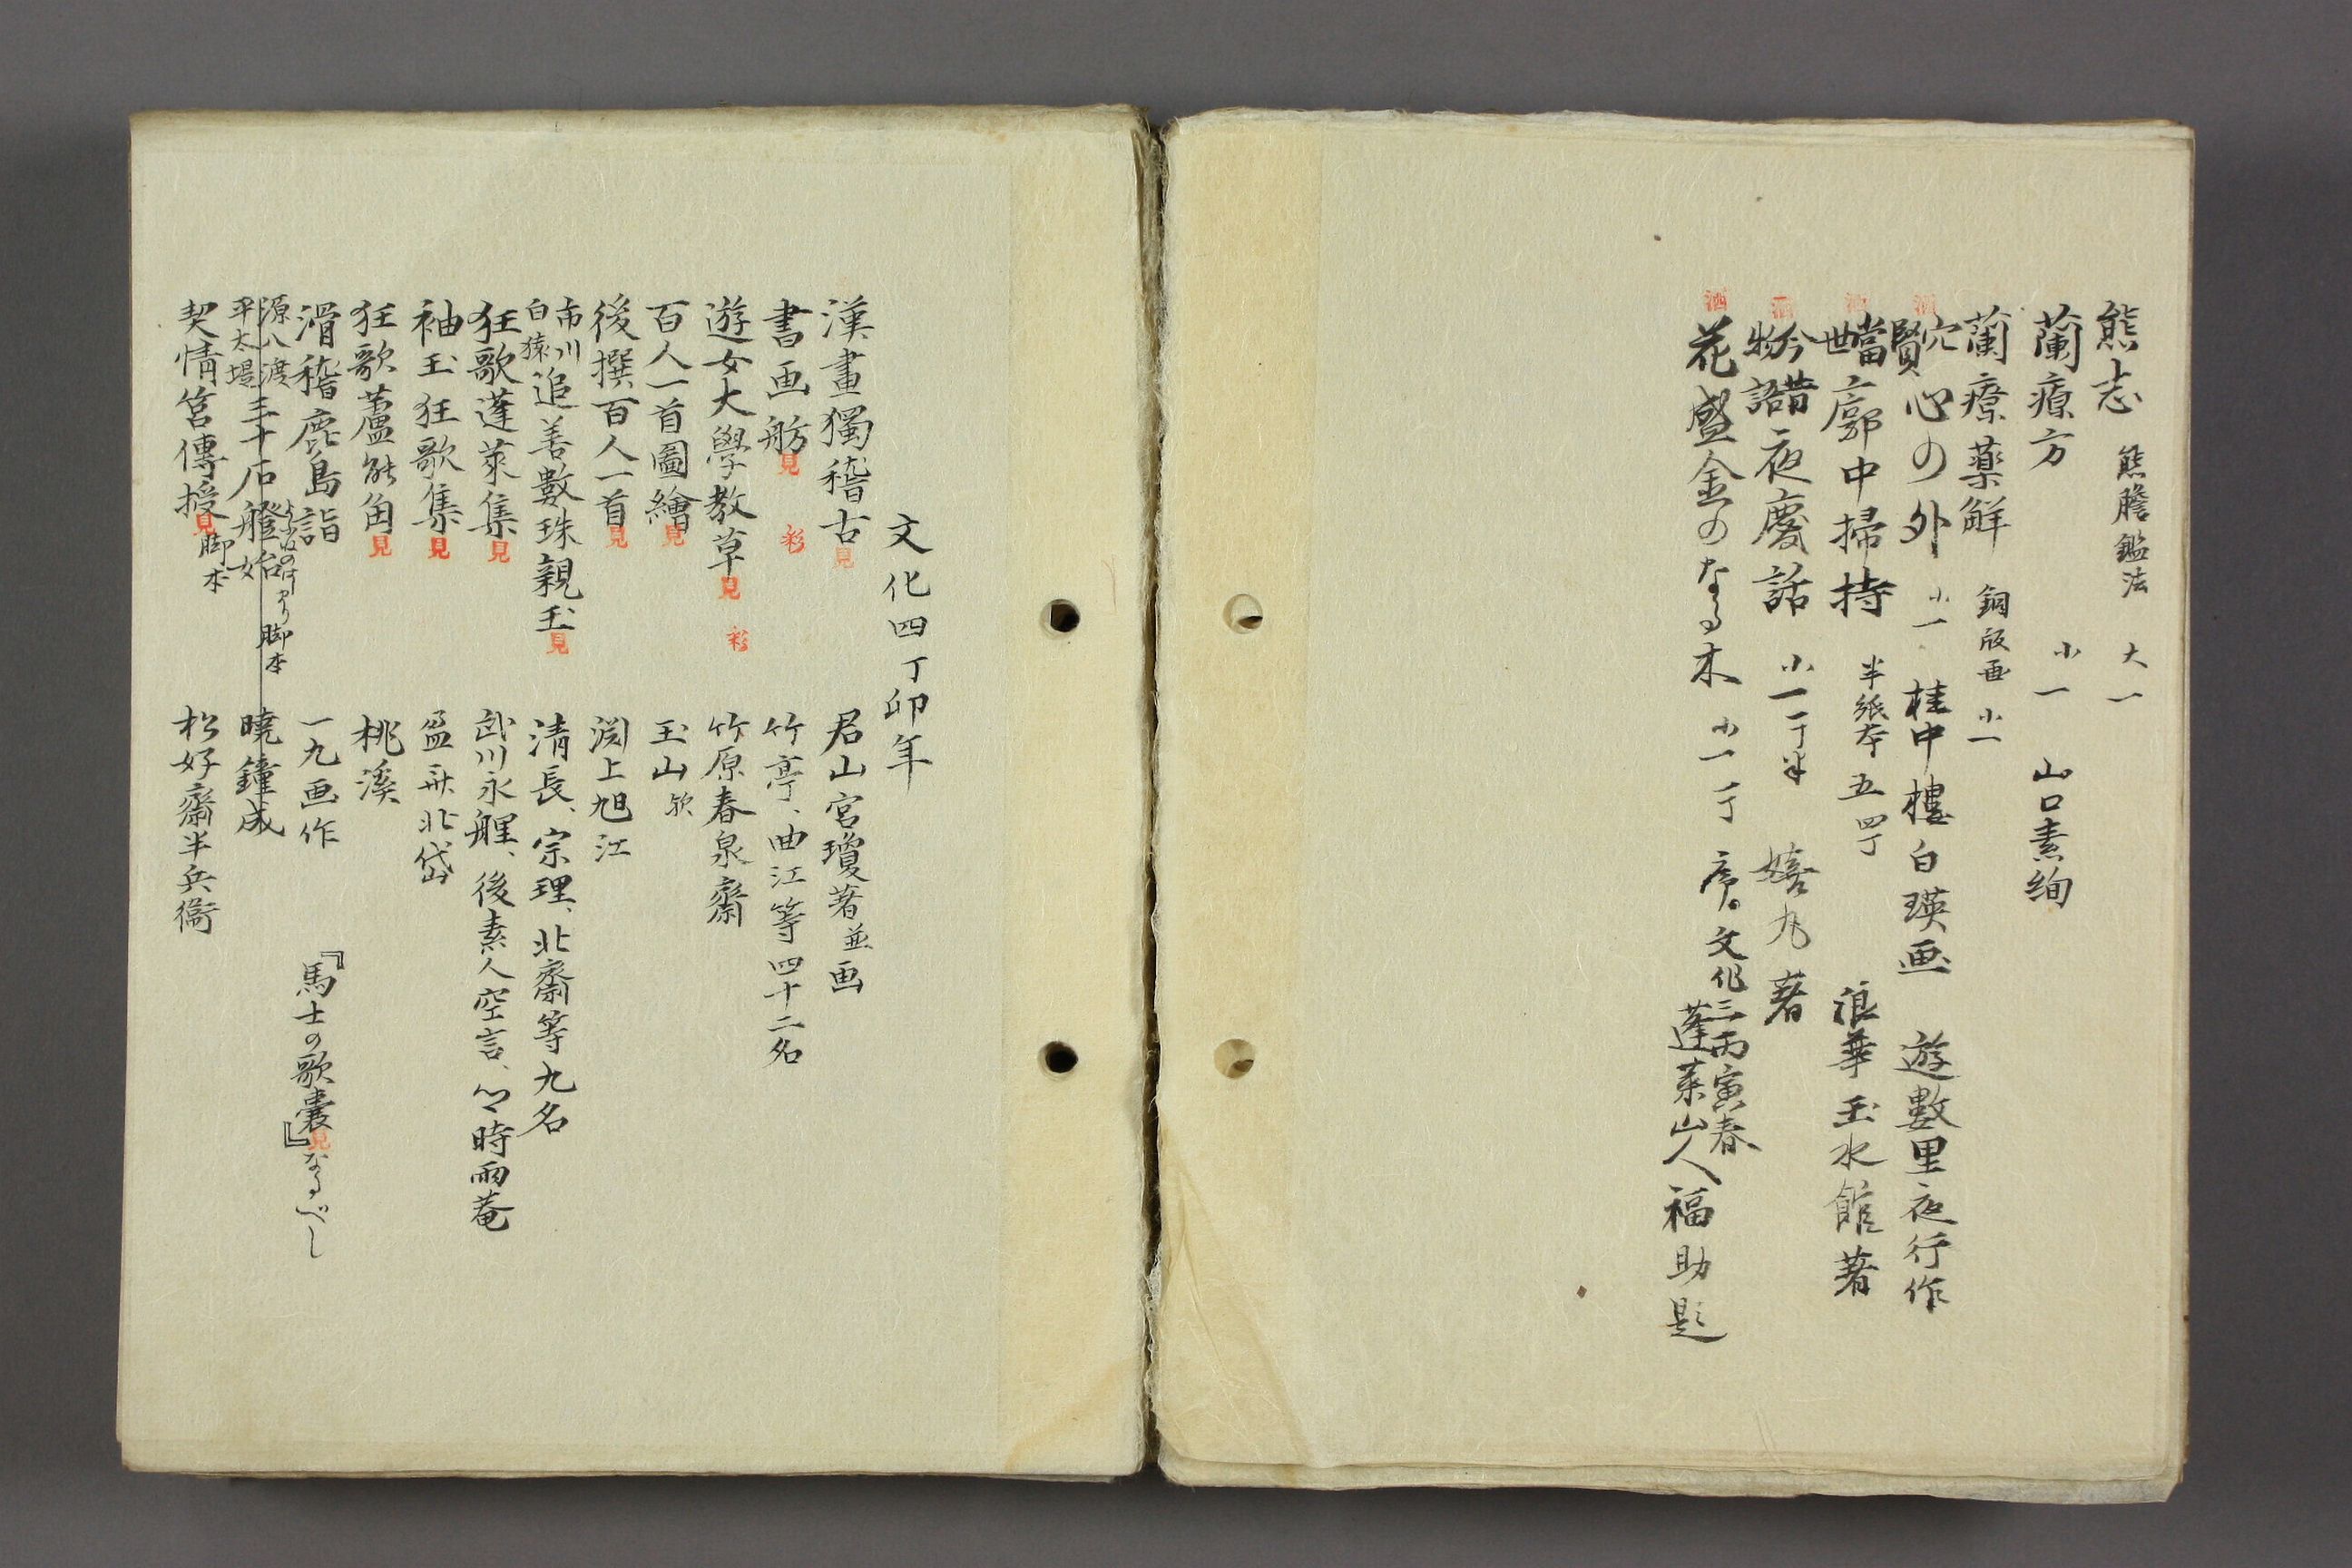 熊志 熊膽鑑法 大一
蘭療方 小一 山口素絢
蘭療薬解 銅版画 小一
洒 穴賢 心の外 小一 桂中樓白瑛画 遊數里夜行作
洒 當世 廓中掃持 半紙本 五四丁 浪華玉水館著
洒 今昔物語 夜慶話 小一 一丁半 嬉丸著
洒 花盛金のなる木 小一 一丁 序。文化三丙寅春 蓬莱山人福助題
文化四丁卯年
漢畫獨稽古 見 君山宮瓊著並画
書画舫 見 彩 竹亭、曲江等四十二名
遊女大學教草 見 彩 竹原春泉齋
百人一首圖繪 見 玉山歟
後撰百人一首 見 渕上旭江
市川白猿 追善數珠親玉 見 清長、宗理、北齋等九名
狂歌蓬莱集 見 武川永艃、後素人空言、心時雨菴
袖玉狂歌集 見 盈斎北岱
狂歌蘆能角 見 桃溪
滑稽鹿島詣 一九画作 『馬士の歌嚢』 見 なるべし
源八渡平太堤 三十石艠始 よふねのはじまり 脚本 曉鐘成
契情筥傳授 見 脚本 松好齋半兵衞